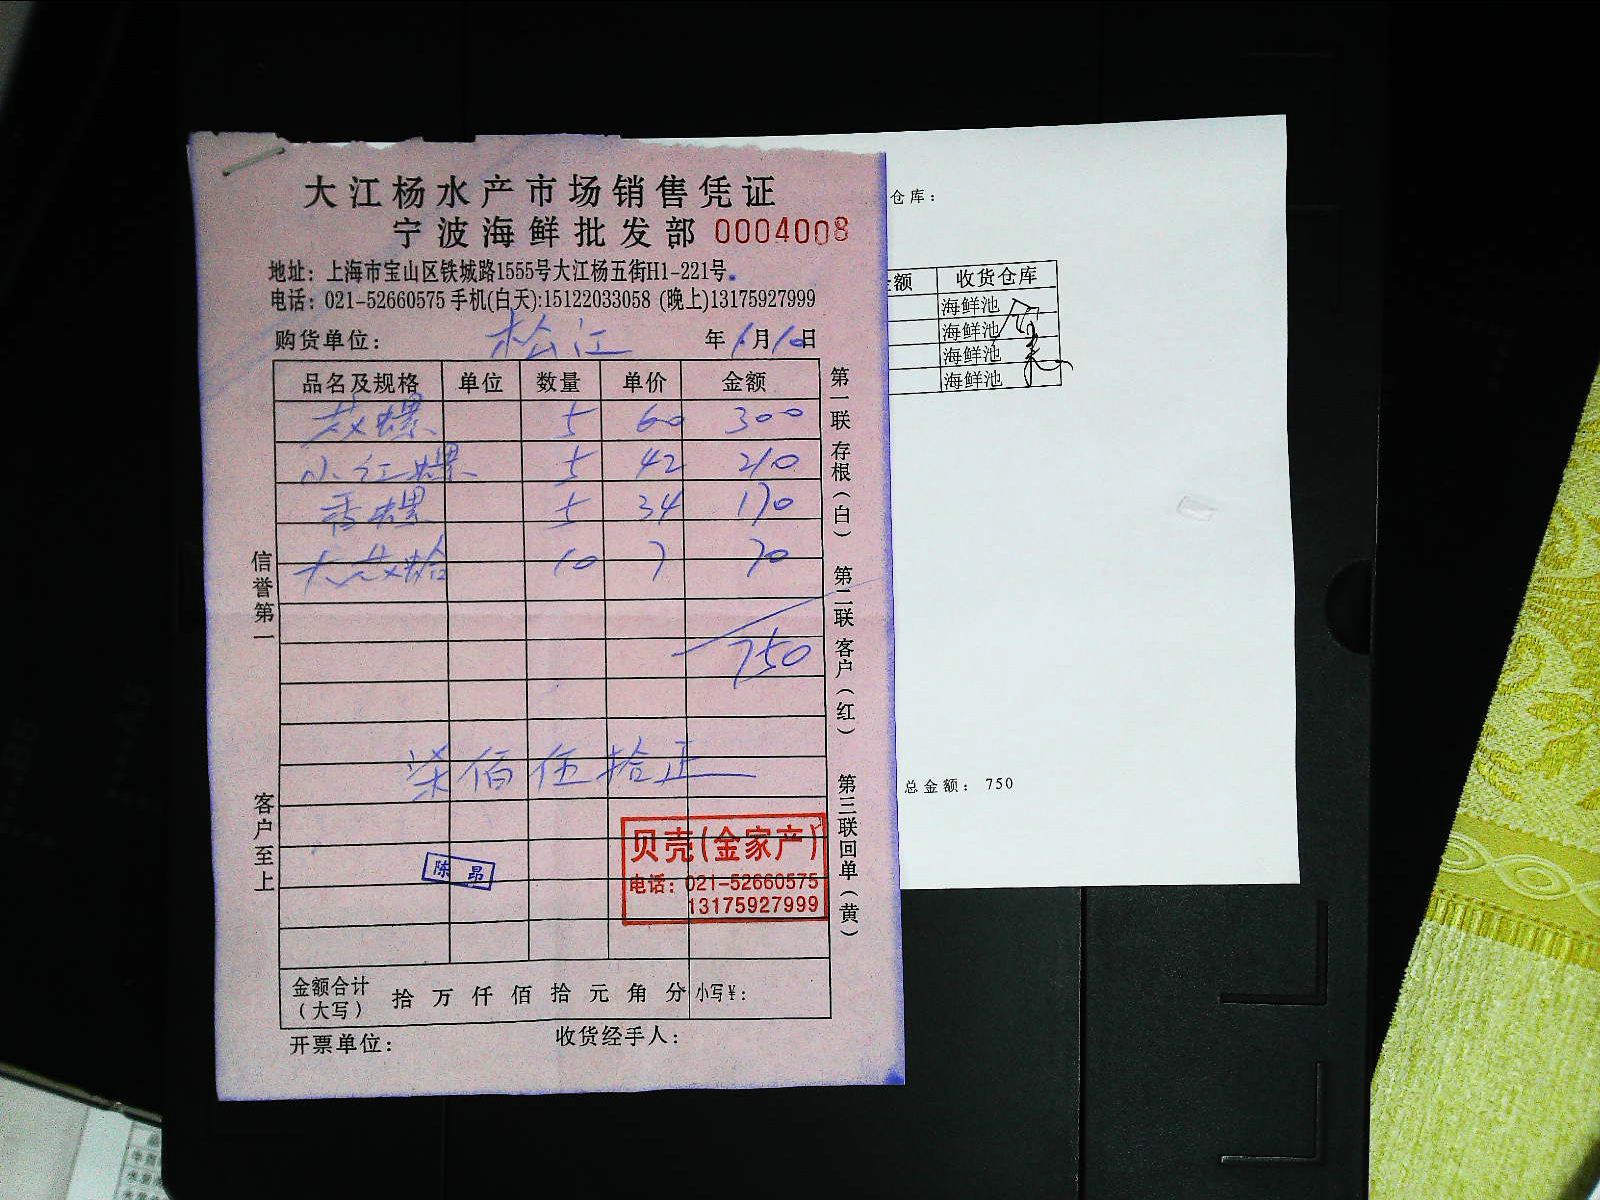 大江杨水产市场销售凭证
宁波海鲜批发部 0004008
地址：上海市宝山区铁城路1555号大江杨五街H1-221号
电话：021-52660575 手机(白天):15122033058 (晚上)13175927999
购货单位： 松江 年 6月10日
品名及规格 单位 数量 单价 金额
花螺 5 60 300
小红螺 5 42 210
香螺 5 34 170
大花蛤 10 7 70
750
柒佰伍拾正
陈昂
贝壳(金家产)
电话：021-52660575
13175927999
金额合计（大写） 拾 万 仟 佰 拾 元 角 分 小写¥：
开票单位： 收货经手人：
信誉第一
客户至上
第一联 存根（白）
第二联 客户（红）
第三联 回单（黄）
仓库：
金额 收货仓库
海鲜池
海鲜池
海鲜池
海鲜池
总金额： 750